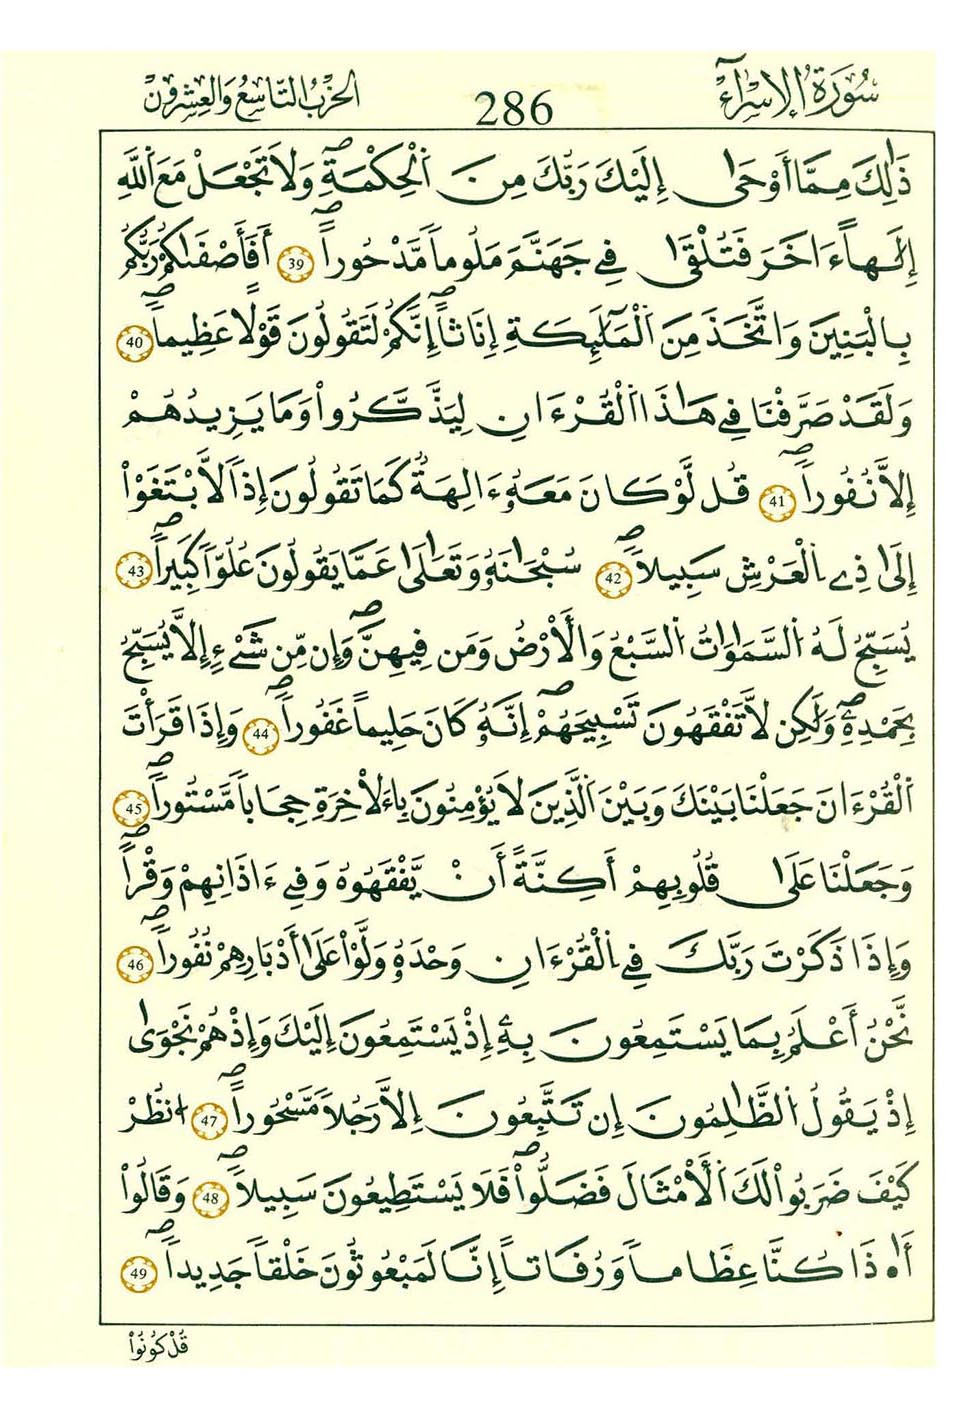 سُورَةُ الإِسْرَآءِ
286
الحِزْبُ التَّاسِعُ وَالعِشْرُونَ
ذَٰلِكَ مِمَّا أَوْحَىٰ إِلَيْكَ رَبُّكَ مِنَ اَ۬لْحِكْمَةِۖ وَلَا تَجْعَلْ مَعَ اَ۬للَّهِ
إِلَٰهاً ءَاخَرَ فَتُلْقَىٰ فِے جَهَنَّمَ مَلُوماً مَّدْحُوراًۖ 39 أَفَأَصْفَىٰكُمْ رَبُّكُم
بِالْبَنِينَ وَاتَّخَذَ مِنَ اَ۬لْمَلَٰٓئِكَةِ إِنَاثاًۖ إِنَّكُمْ لَتَقُولُونَ قَوْلًا عَظِيماًۖ 40
وَلَقَدْ صَرَّفْنَا فِے هَٰذَا اَ۬لْقُرْءَانِ لِيَذَّكَّرُواْ وَمَا يَزِيدُهُمْ
إِلَّا نُفُوراًۖ 41 قُل لَّوْ كَانَ مَعَهُۥ ءَالِهَةٞ كَمَا تَقُولُونَ إِذاً لَّابْتَغَوْاْ
إِلَىٰ ذِے اِ۬لْعَرْشِ سَبِيلًاۖ 42 سُبْحَٰنَهُۥ وَتَعَٰلَىٰ عَمَّا يَقُولُونَ عُلُوّاً كَبِيراًۖ 43
يُسَبِّحُ لَهُ اُ۬لسَّمَٰوَٰتُ اُ۬لسَّبْعُ وَالْأَرْضُ وَمَن فِيهِنَّۖ وَإِن مِّن شَےْءٍ إِلَّا يُسَبِّحُ
بِحَمْدِهِۦۖ وَلَٰكِن لَّا تَفْقَهُونَ تَسْبِيحَهُمْۖ إِنَّهُۥ كَانَ حَلِيماً غَفُوراًۖ 44 وَإِذَا قَرَأْتَ
اَ۬لْقُرْءَانَ جَعَلْنَا بَيْنَكَ وَبَيْنَ اَ۬لَّذِينَ لَا يُؤْمِنُونَ بِالْأٓخِرَةِ حِجَاباً مَّسْتُوراًۖ 45
وَجَعَلْنَا عَلَىٰ قُلُوبِهِمْ أَكِنَّةً أَنْ يَّفْقَهُوهُ وَفِے ءَاذَانِهِمْ وَقْراًۖ
وَإِذَا ذَكَرْتَ رَبَّكَ فِے اِ۬لْقُرْءَانِ وَحْدَهُۥ وَلَّوْاْ عَلَىٰ أَدْبَٰرِهِمْ نُفُوراًۖ 46
نَّحْنُ أَعْلَمُ بِمَا يَسْتَمِعُونَ بِهِۦ إِذْ يَسْتَمِعُونَ إِلَيْكَ وَإِذْ هُمْ نَجْوَىٰ
إِذْ يَقُولُ اُ۬لظَّٰلِمُونَ إِن تَتَّبِعُونَ إِلَّا رَجُلًا مَّسْحُوراًۖ 47 اُ۟نظُرْ
كَيْفَ ضَرَبُواْ لَكَ اَ۬لْأَمْثَالَ فَضَلُّواْۖ فَلَا يَسْتَطِيعُونَ سَبِيلًاۖ 48 وَقَالُوٓاْ
أَ۟ذَا كُنَّا عِظَاماً وَرُفَاتاً إِنَّا لَمَبْعُوثُونَ خَلْقاً جَدِيداًۖ 49
قُلْ كُونُواْ